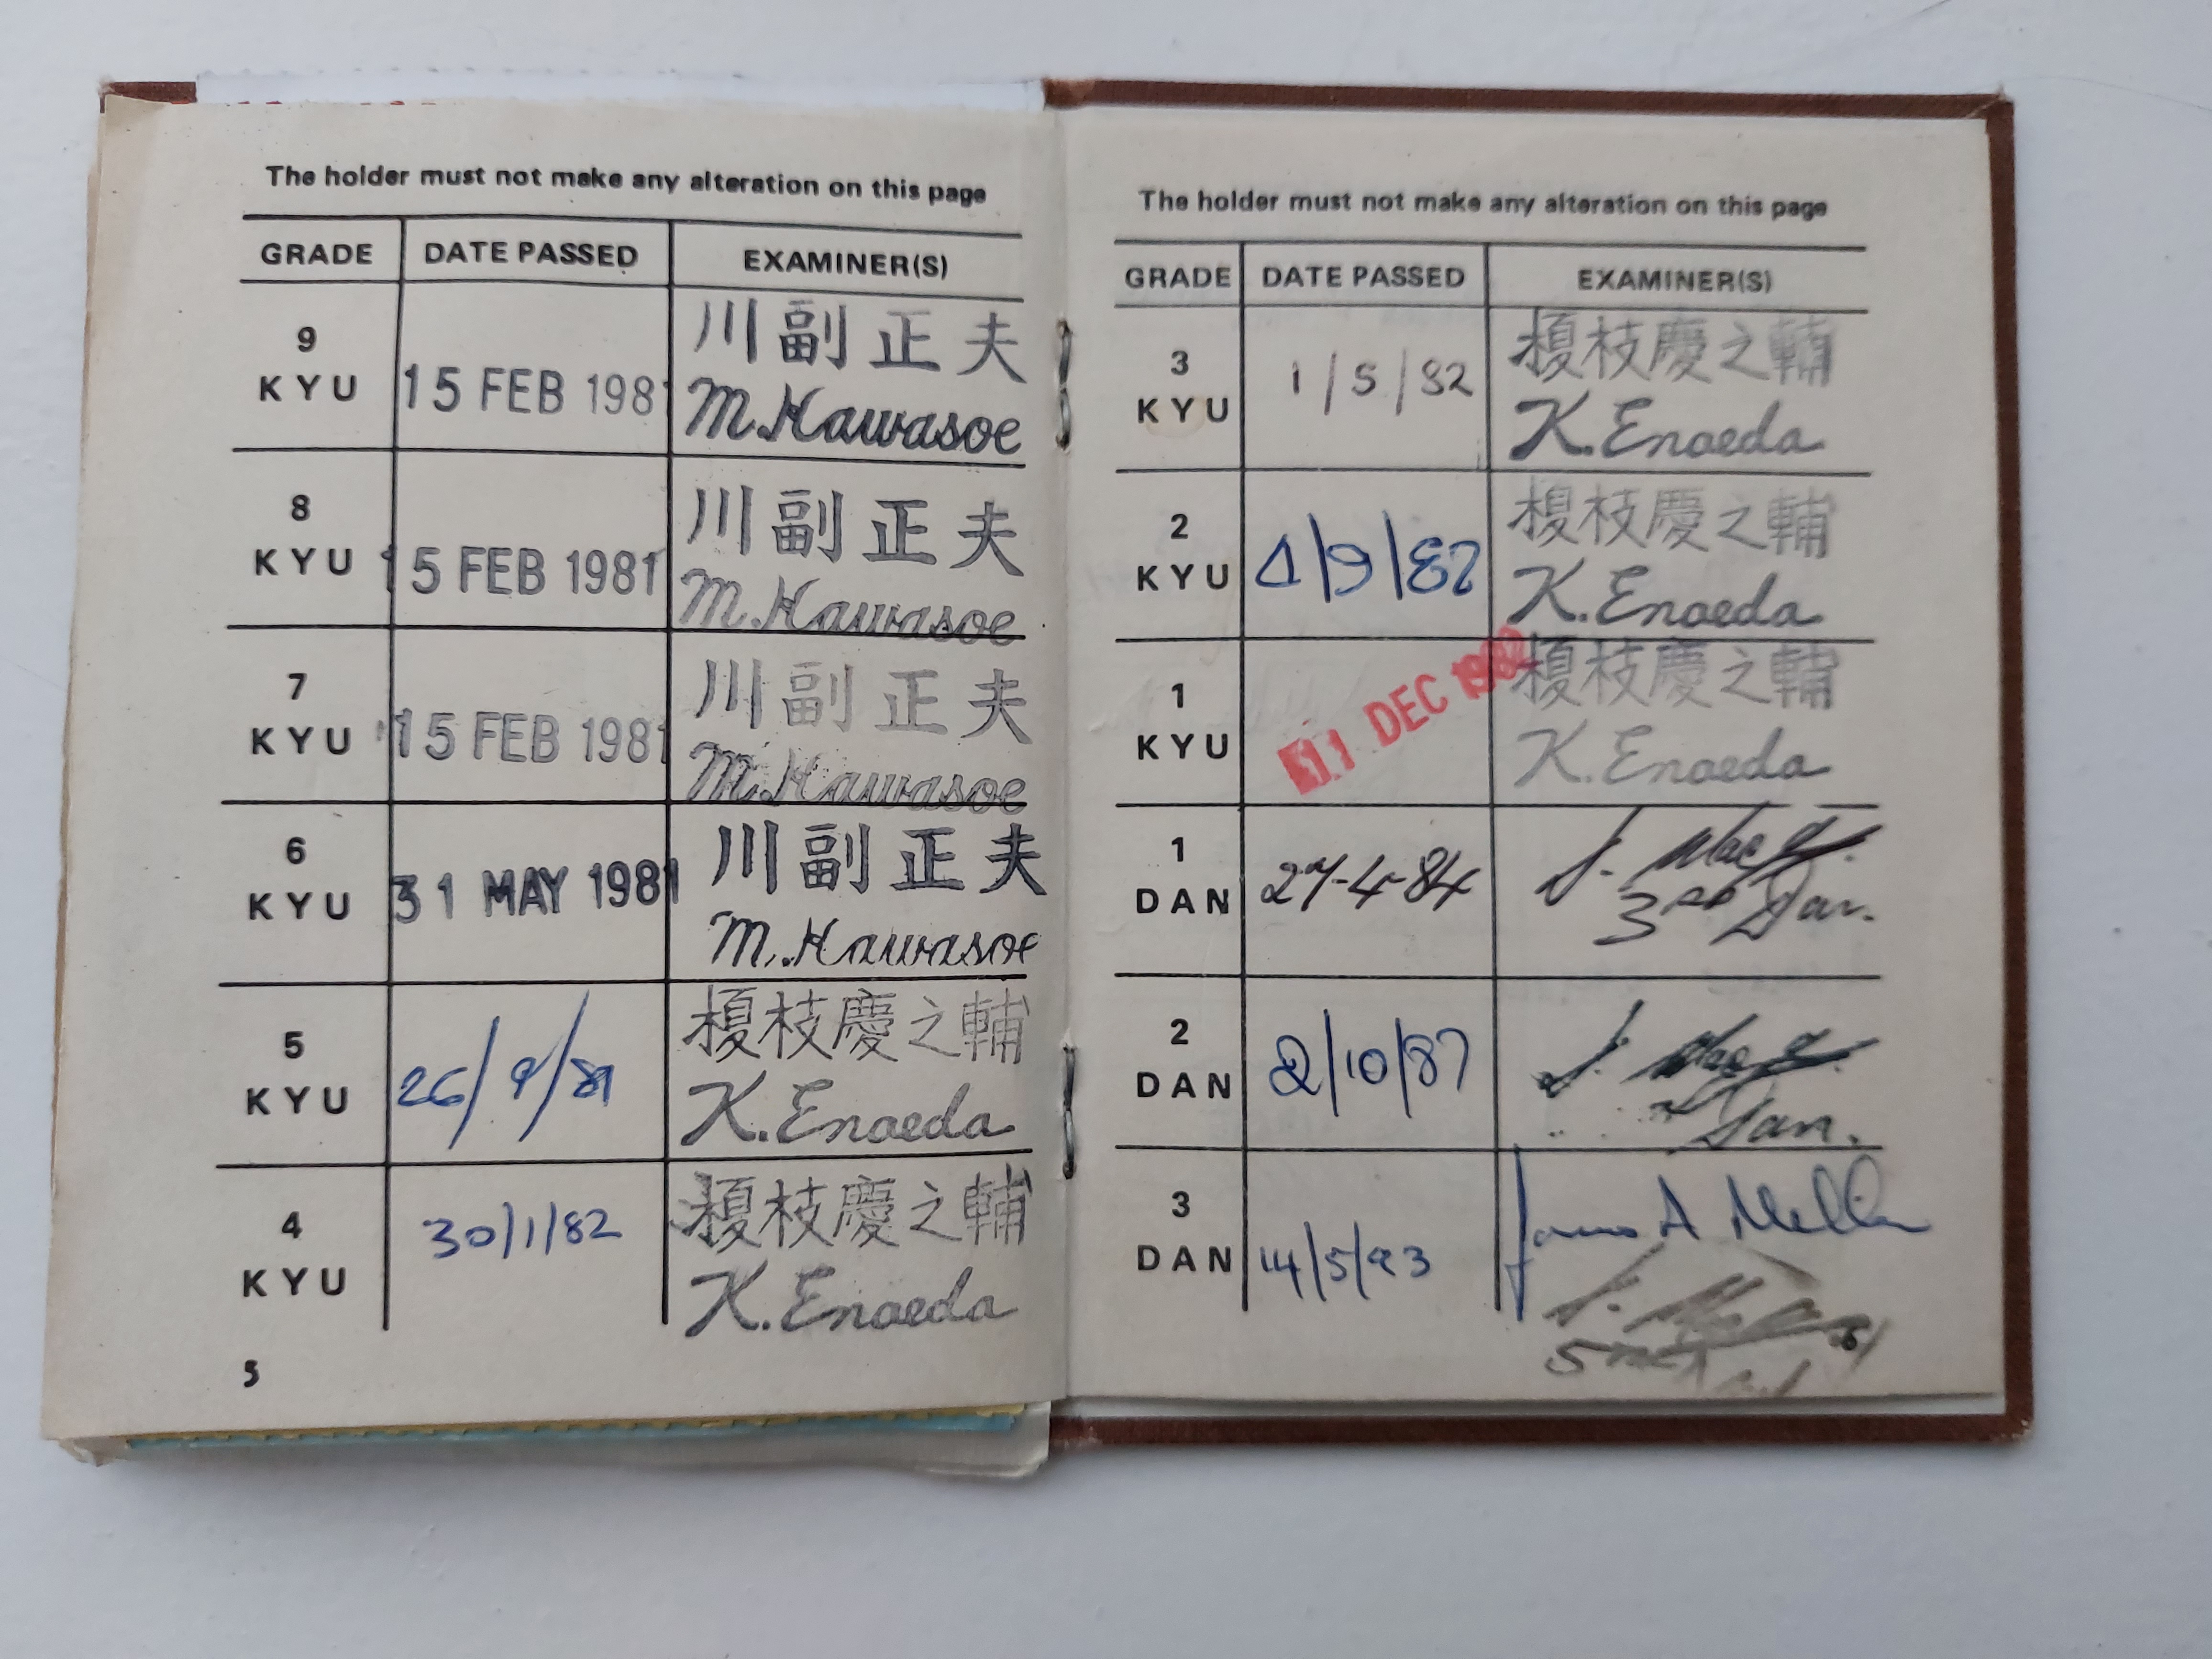 The holder must not make any alteration on this page
GRADE DATE PASSED EXAMINER(S)
9 KYU 15 FEB 1981 川副正夫
M. Kawasoe
8 KYU 15 FEB 1981 川副正夫
M. Kawasoe
7 KYU 15 FEB 1981 川副正夫
M. Kawasoe
6 KYU 31 MAY 1981 川副正夫
M. Kawasoe
5 KYU 26/9/81 榎枝慶之輔
K. Enoeda
4 KYU 30/1/82 榎枝慶之輔
K. Enoeda
5
The holder must not make any alteration on this page
GRADE DATE PASSED EXAMINER(S)
3 KYU 1/5/82 榎枝慶之輔
K. Enoeda
2 KYU 4/9/82 榎枝慶之輔
K. Enoeda
1 KYU 11 DEC 1982 榎枝慶之輔
K. Enoeda
1 DAN 27-4-84
3RD Dan.
2 DAN 2/10/87
Dan.
3 DAN 14/5/93 James A
6